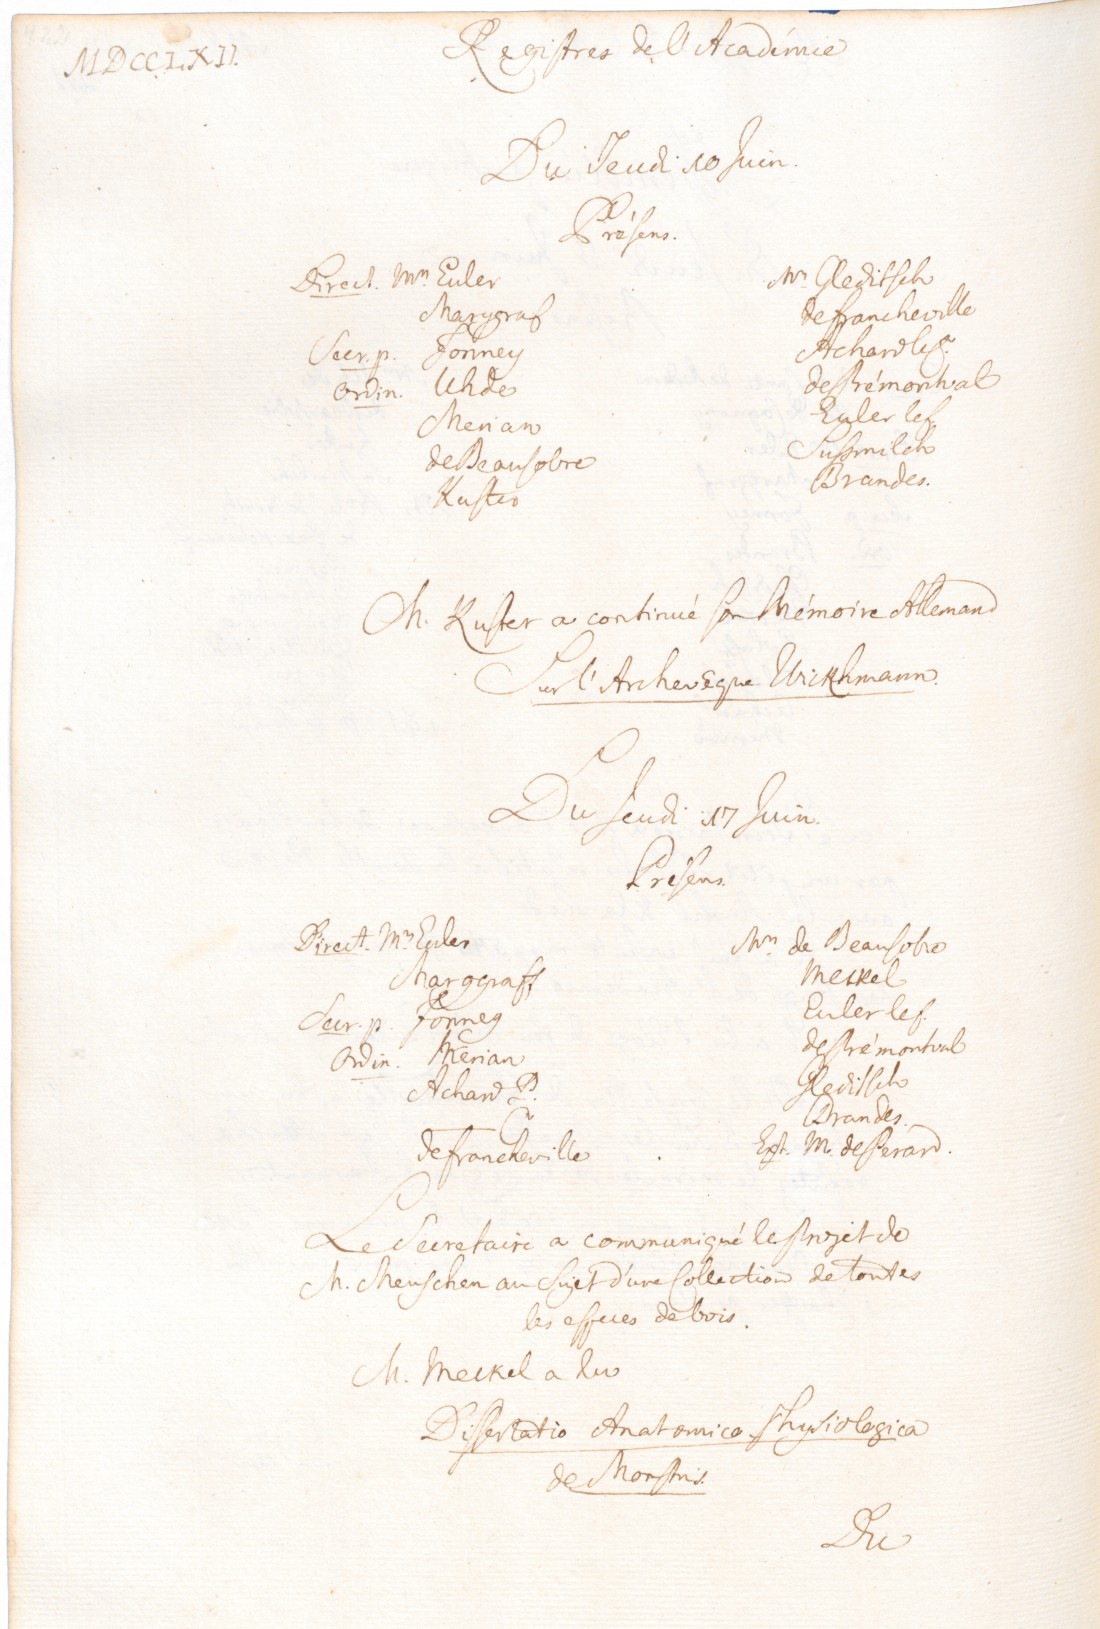 MDCCLXII.
Registres de l'Académie
Du Jeudi 10 Juin.
Présens.
Direct. Mrs Euler
Marggraf
Secr. p. Formey
Ordin. Uhde
Merian
de Beausobre
Kuster
Mrs Gleditsch
de Francheville
Achard le
de Prémontval
Euler le f.
Sussmilch
Brandes.
M. Kuster a continué son Mémoire Allemand
Sur l'Archevêque Wickhmann.
Du Jeudi 17 Juin.
Présens.
Direct. Mrs Euler
Marggraff
Secr. p. Formey
Ordin. Merian
Achard P.
de Francheville
Mrs de Beausobre
Meckel
Euler le f.
de Prémontval
Gleditsch
Brandes.
Ext. M. de Perard.
Le Secretaire a communiqué le projet de
M. Meuschen au Sujet d'une Collection de toutes
les especes de bois.
M. Meckel a lu
Dissertatio Anatomico Physiologica
de Monstris.
Du